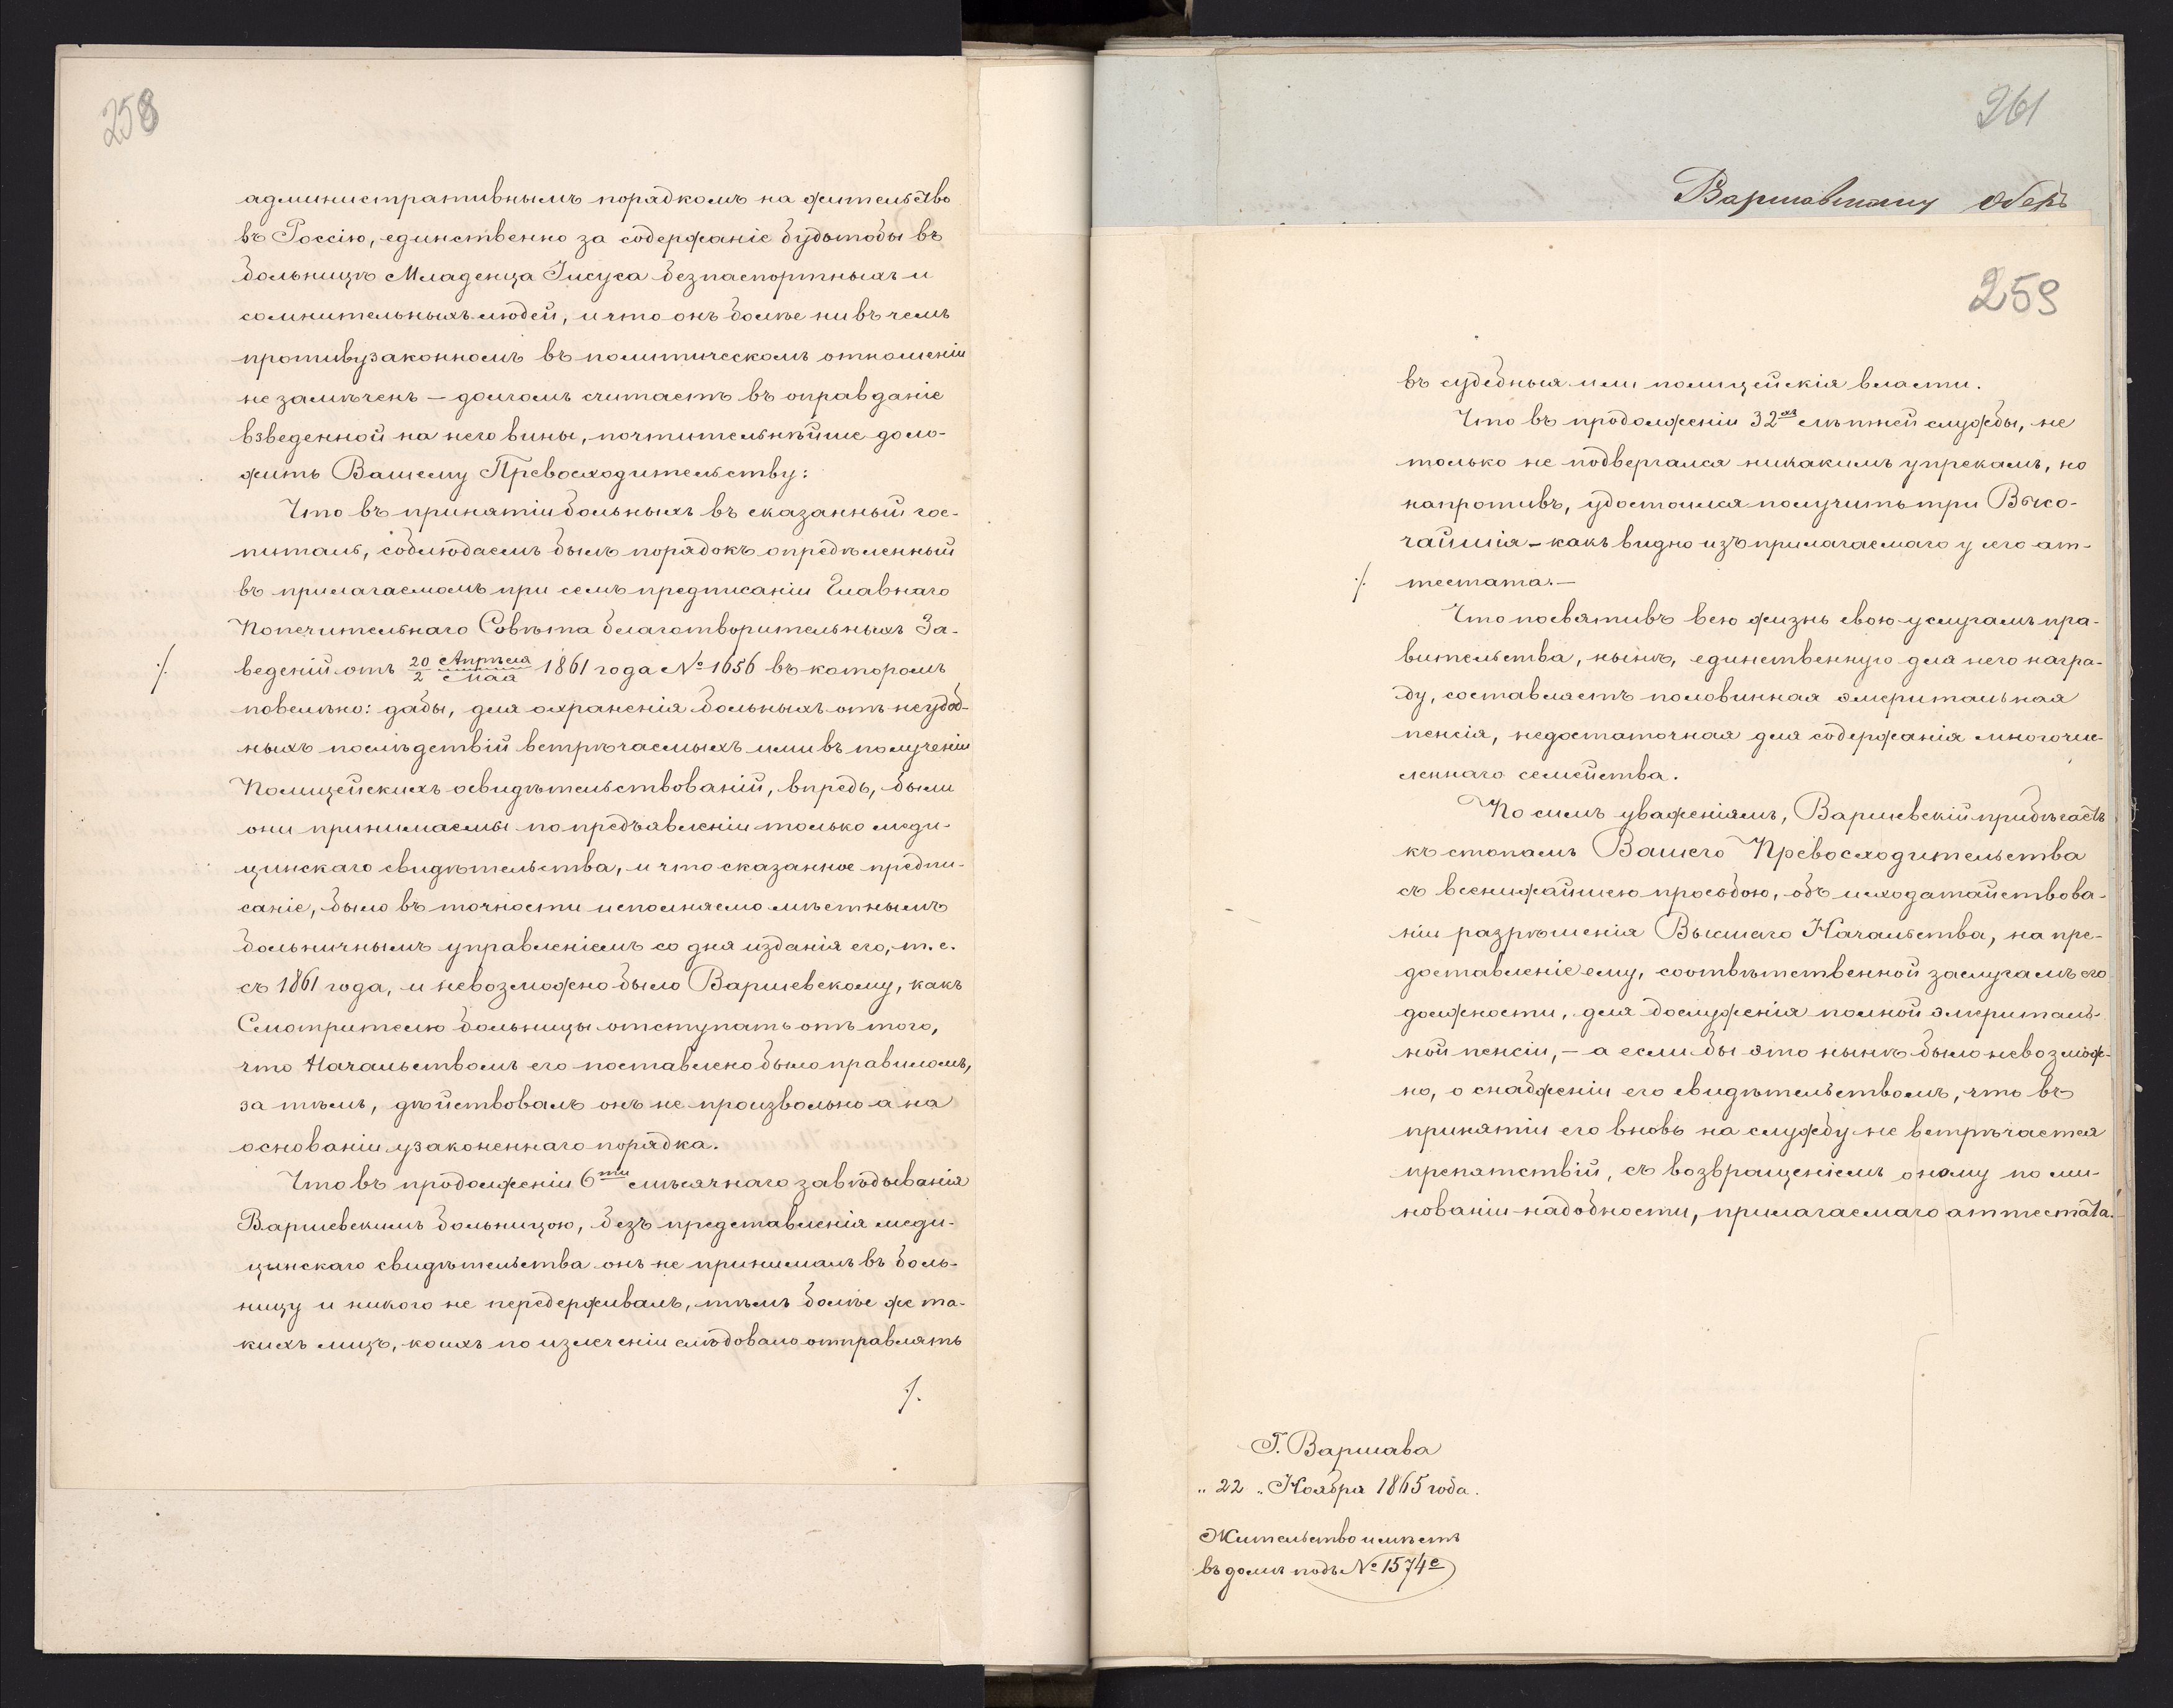 258
административнымъ порядкомъ на жительство
въ Россію, единственно за содержаніе будьтобы въ
больницѣ Младенца Іисуса безпаспортныхъ и
сомнительныхъ людей, и что онъ болѣе ни въ чемъ
противузаконномъ въ политическомъ отношеніи
не замѣченъ — долгомъ считаетъ въ оправданіе
взведенной на него вины, почтительнѣйше доло-
жить Вашему Превосходительству:
Что въ принятіи больныхъ въ сказанный гос-
питаль, соблюдаемъ былъ порядокъ опредѣленный
въ прилагаемомъ при семъ предписаніи Главнаго
Попечительнаго Совѣта благотворительныхъ За-
·/. веденій отъ 20/2 Апрѣля/Мая 1861 года № 1656 въ которомъ
повелѣно: дабы, для охраненія больныхъ отъ неудоб-
ныхъ послѣдствій встрѣчаемыхъ ими въ полученіи
Полицейскихъ освидѣтельствованій, впредь, были
они принимаемы по предъявленіи только меди-
цинскаго свидѣтельства, и что сказанное предпи-
саніе, было въ точности исполняемо мѣстнымъ
больничнымъ управленіемъ со дня изданія его, т. е.
съ 1861 года, и невозможно было Варшевскому, какъ
Смотрителю больницы отступать отъ того,
что Начальствомъ его поставлено было правиломъ,
за тѣмъ, дѣйствовалъ онъ не произвольно а на
основаніи узаконеннаго порядка.
Что въ продолженіи 6ти мѣсячнаго завѣдыванія
Варшевскимъ больницою, безъ представленія меди-
цинскаго свидѣтельства онъ не принималъ въ боль-
ницу и никого не передерживалъ, тѣмъ болѣе же та-
кихъ лицъ, коихъ по излеченіи слѣдовало отправлять
·/.
261
Варшавскому Оберъ
259
въ судебныя или полицейскія власти.
Что въ продолженіи 32хъ лѣтней службы, не
только не подвергался никакимъ упрекамъ, но
напротивъ, удостоился получить три Высо-
чайшія — какъ видно изъ прилагаемаго у сего ат-
·/. тестата. —
Что посвятивъ всю жизнь свою услугамъ пра-
вительства, нынѣ, единственную для него награ-
ду, составляетъ половинная эмеритальная
пенсія, недостаточная для содержанія многочис-
леннаго семейства.
По симъ уваженіямъ, Варшевскій прибѣгаетъ
къ стопамъ Вашего Превосходительства
съ всенижайшею просьбою, объ исходатайствова-
ніи разрѣшенія Высшаго Начальства, на пре-
доставленіе ему, соотвѣтственной заслугамъ его
должности, для дослуженія полной эмериталь-
ной пенсіи, — а если бы это нынѣ было невозмож-
но, о снабженіи его свидѣтельствомъ, что въ
принятіи его вновь на службу не встрѣчается
препятствій, съ возвращеніемъ оному по ми-
нованіи надобности, прилагаемаго аттестата. —
Г. Варшава
„ 22 „ Ноября 1865 года.
Жительство имѣетъ
въ домѣ подъ № 1574е